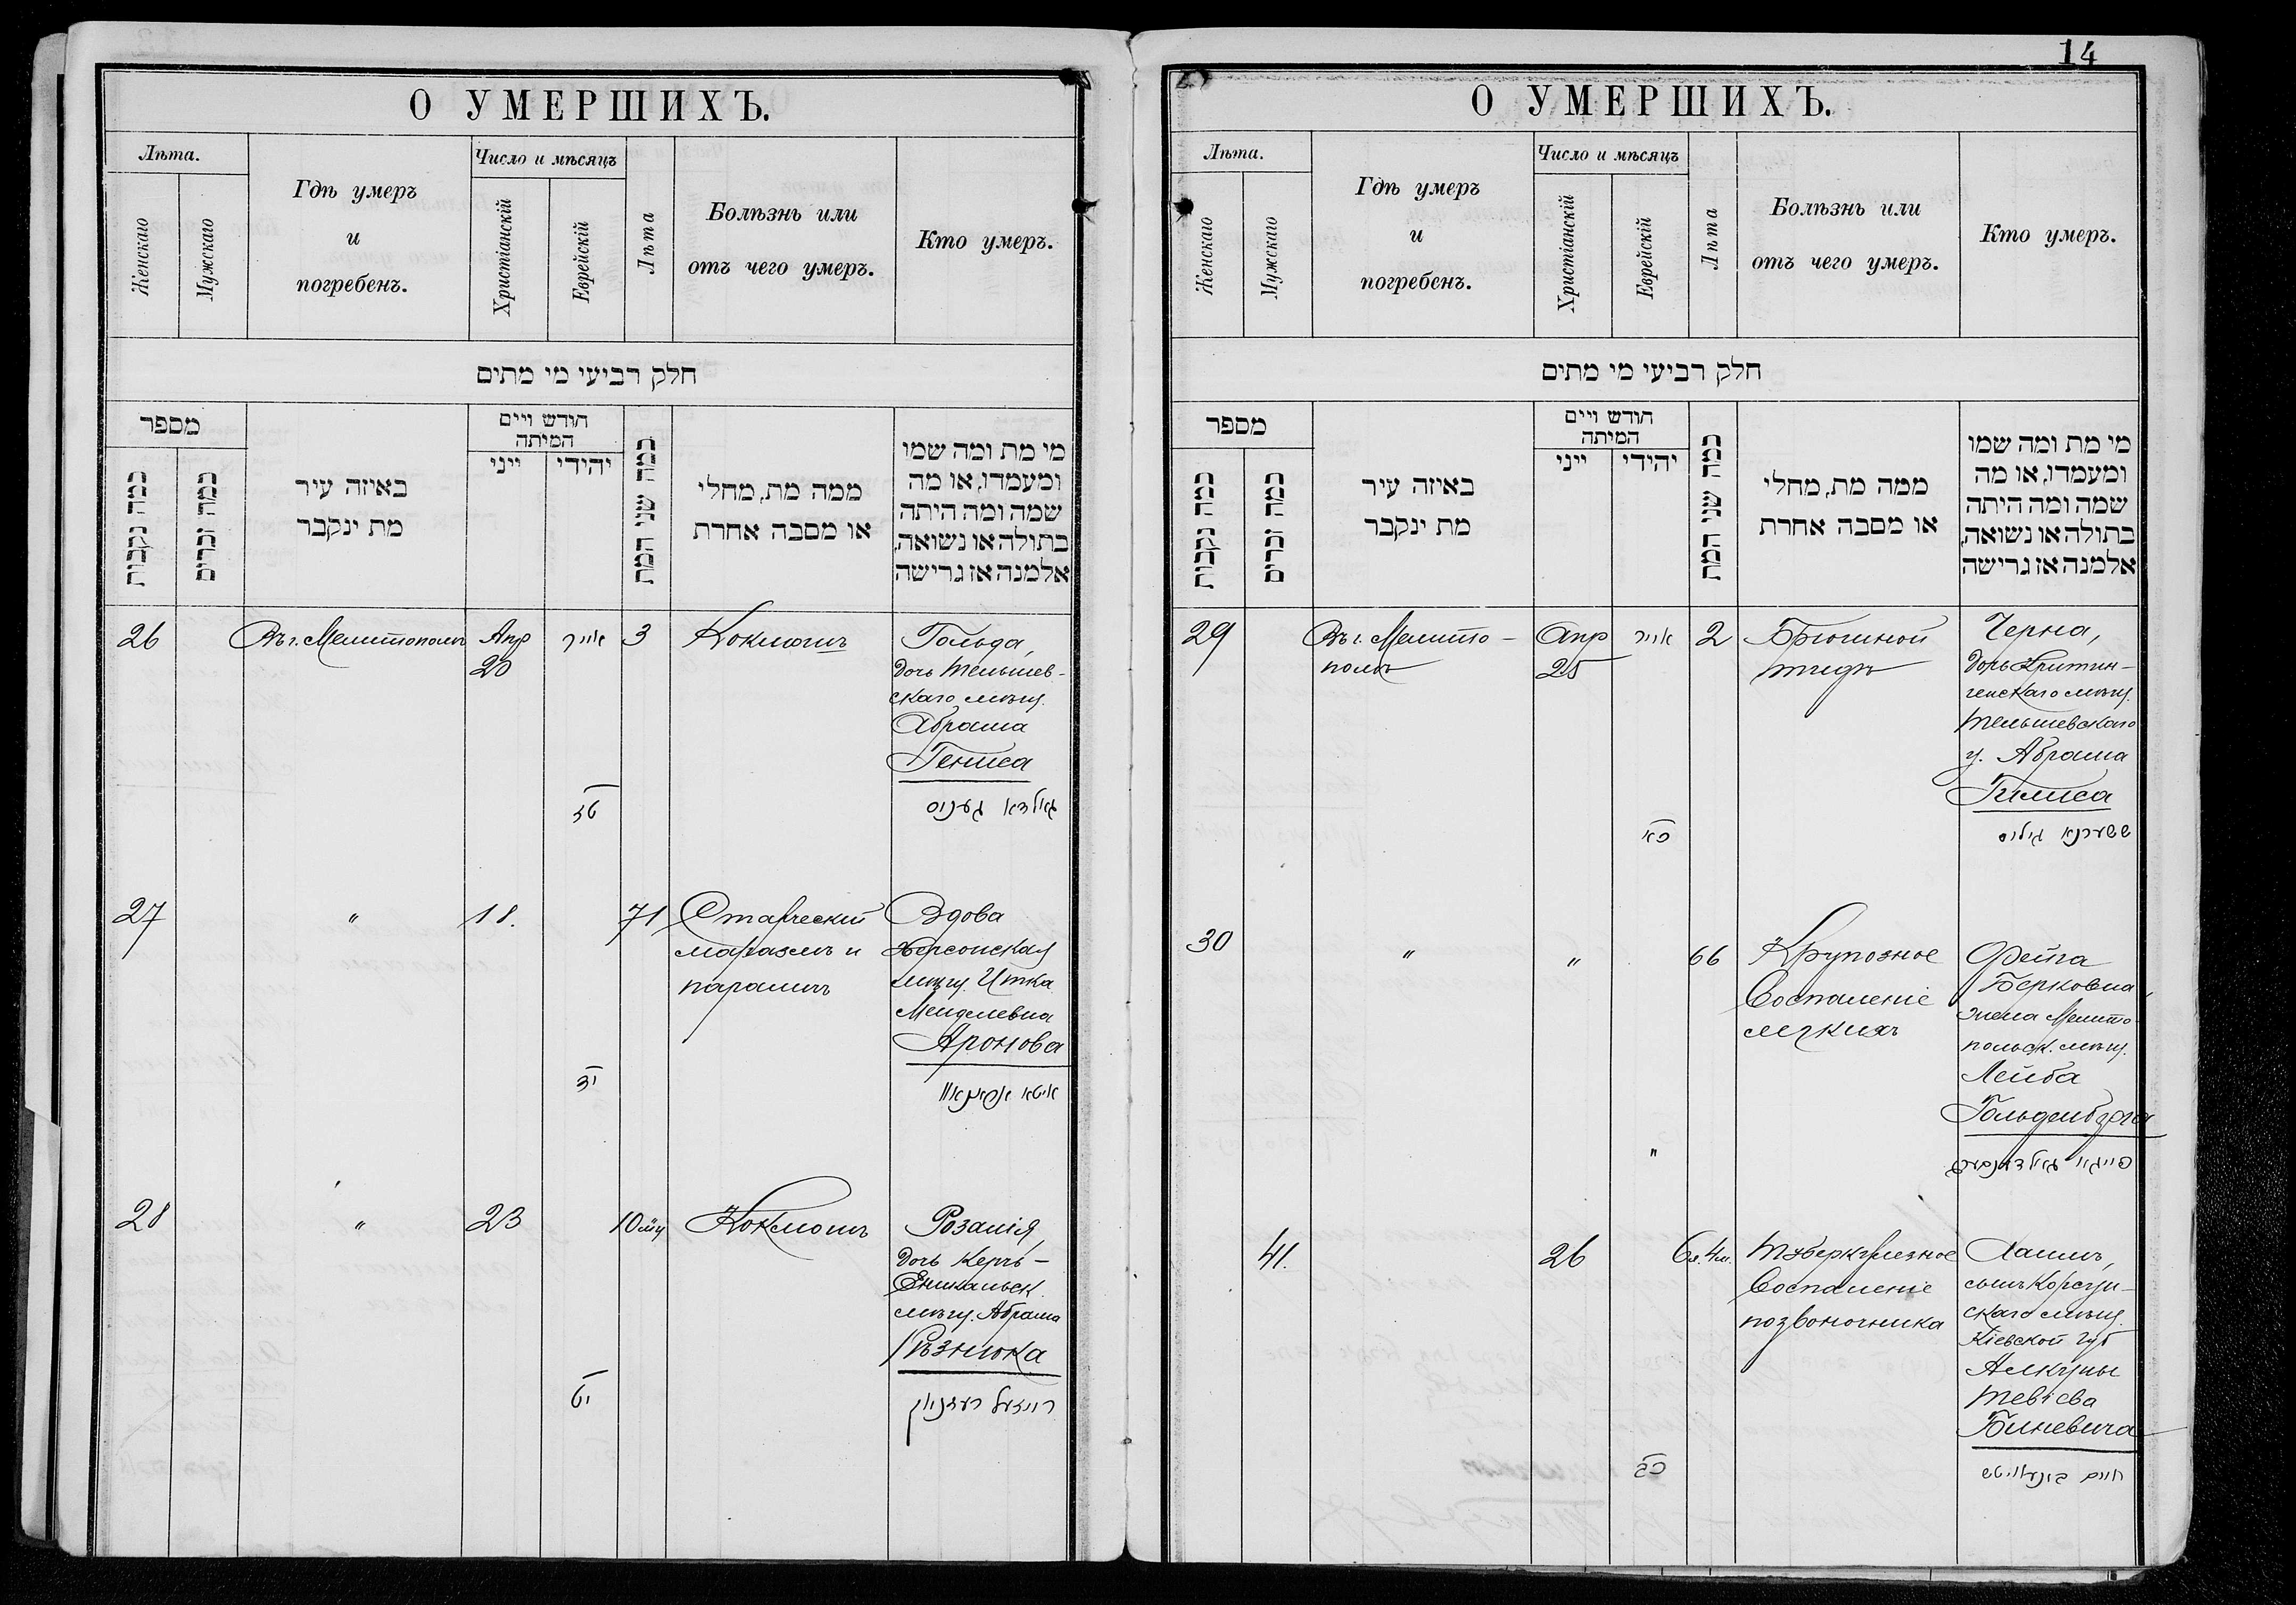 14
О УМЕРШИХЪ.
Лѣта.
Женскаго
Мужскаго
Гдѣ умеръ
и
погребенъ.
Число и мѣсяцъ
Христіанскій
Еврейскій
Лѣта
Болѣзнь или
отъ чего умеръ.
Кто умеръ.
חלק רביעי מי מתים
מספר
כמה נקבות
כמה זכרים
באיזה עיר
מת ינקבר
חודש ויים
המיתה
ייני
יהודי
כמה שני המת
ממה מת, מחלי
או מסבה אחרת
מי מת ומה שמו
ומעמדו, או מה
שמה ומה היתה
בתולה או נשואה,
אלמנה אז גרישה
26
Въ г. Мелитополѣ
Апр
20
אייר
טז
3
Коклюшъ
Гольда,
дочь Тельшев-
скаго мѣщ.
Абрама
Гениса
גאלדא גענים
27
"
18.
יד
71
Старческій
маразмъ и
параличъ
Вдова
Херсонская
мѣщ. Итка
Менделевна
Аронова
איטא
28
"
23
יט
10 мц
Коклюшъ
Розалія,
дочь Керчь-
Еникальск.
мѣщ. Абрама
Рѣзника
רייזעל רעזניק
О УМЕРШИХЪ.
Лѣта.
Женскаго
Мужскаго
Гдѣ умеръ
и
погребенъ.
Число и мѣсяцъ
Христіанскій
Еврейскій
Лѣта
Болѣзнь или
отъ чего умеръ.
Кто умеръ.
חלק רביעי מי מתים
מספר
כמה נקבות
כמה זכרים
באיזה עיר
מת ינקבר
חודש ויים
המיתה
ייני
יהודי
כמה שני המת
ממה מת, מחלי
או מסבה אחרת
מי מת ומה שמו
ומעמדו, או מה
שמה ומה היתה
בתולה או נשואה,
אלמנה אז גרישה
29
Въ г. Мелито-
полѣ
Апр
25
אייר
כא
2
Брюшной
тифъ
Черна,
дочь Критин-
генскаго мѣщ.
Тельшевскаго
у. Абрама
Гилиса
גילים
30
"
"
"
66
Крупозное
воспаленіе
легкихъ
Фейга
Берковна,
жена Мелито-
польск. мѣщ.
Лейба
Гольденберга
פייגא גאלדענבערג
41.
26
כב
6 л. 4 м.
Туберкулезное
воспаленіе
позвоночника
Хаимъ,
сынъ Корсун-
скаго мѣщ.
Кіевской губ
Тевіева
Биневича
חיים בינעוויטש